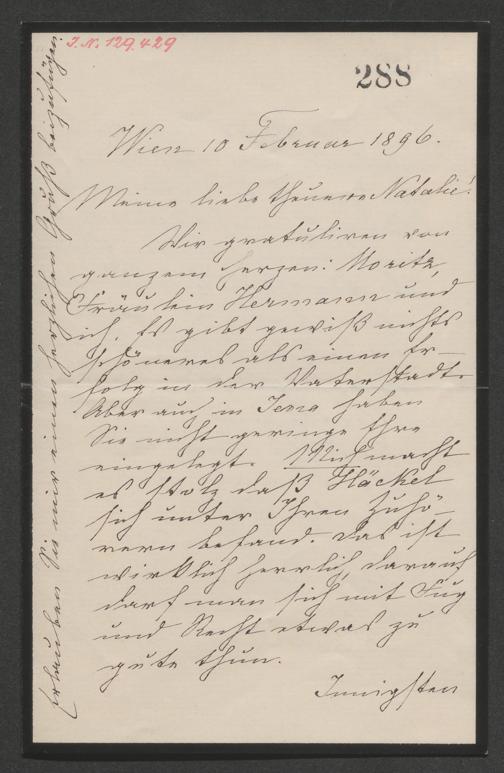 I.N. 129.429
288
Wien 10 Februar 1896.
Meine liebe theuere Natalie!
Wir gratuliren von
ganzem Herzen: Moritz,
Fräulein Hermann und
ich. Es gibt gewiß nichts
schöneres als einen Er-
folg in der Vaterstadt.
Aber auch in Jena haben
Sie nicht geringe Ehre
eingelegt. Mich macht
es stolz daß Häckel
sich unter Ihren Zuhö-
rern befand. Das ist
wirklich herrlich, darauf
darf man sich mit Fug
und Recht etwas zu
gute thun.
Innigsten
Erlauben Sie mir einen herzlichen Gruß beizufügen.